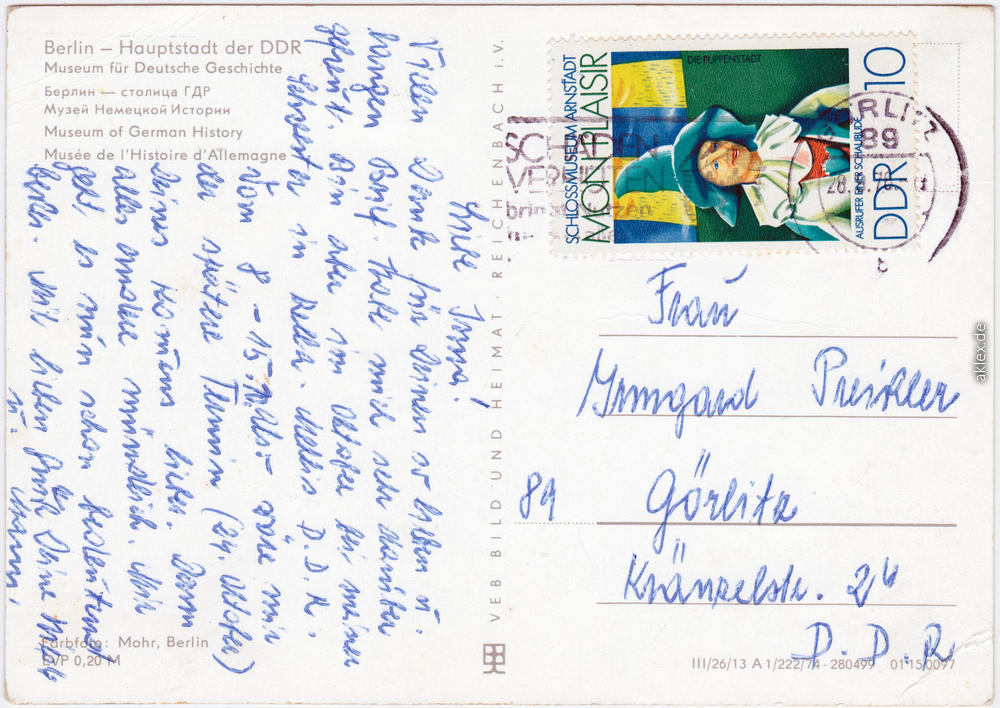 Berlin – Hauptstadt der DDR
Museum für Deutsche Geschichte
Берлин — столица ГДР
Музей Немецкой Истории
Museum of German History
Musée de l'Histoire d'Allemagne
Liebe Irma!
Vielen Dank für Deinen so lieben u.
langen Brief. Habe mich sehr darüber
gefreut. Bin aber im Oktober bei meiner
Schwester in Zella-Mehlis D.D.R.
Vom 8 - 15. Also wäre mir
der spätere Termin (24. Oktober)
Deines Kommens lieber. Dann
alles andere mündlich. Mir
geht es nun schon bedeutend
besser. Mit lieben Gruß Deine
u. Mann.
Farbfoto: Mohr, Berlin
EVP 0,20 M
VEB BILD UND HEIMAT REICHENBACH i. V.
SCHLOSSMUSEUM ARNSTADT
MON PLAISIR
DIE PUPPENSTADT
AUSRUFER EINER SCHAUBUDE
DDR 10
89
28.
b
Frau
Irmgard
89 Görlitz
Kränzelstr. 24
D.D.R
III/26/13 A 1/222/74 - 280499 01 15 0097
aklex.de